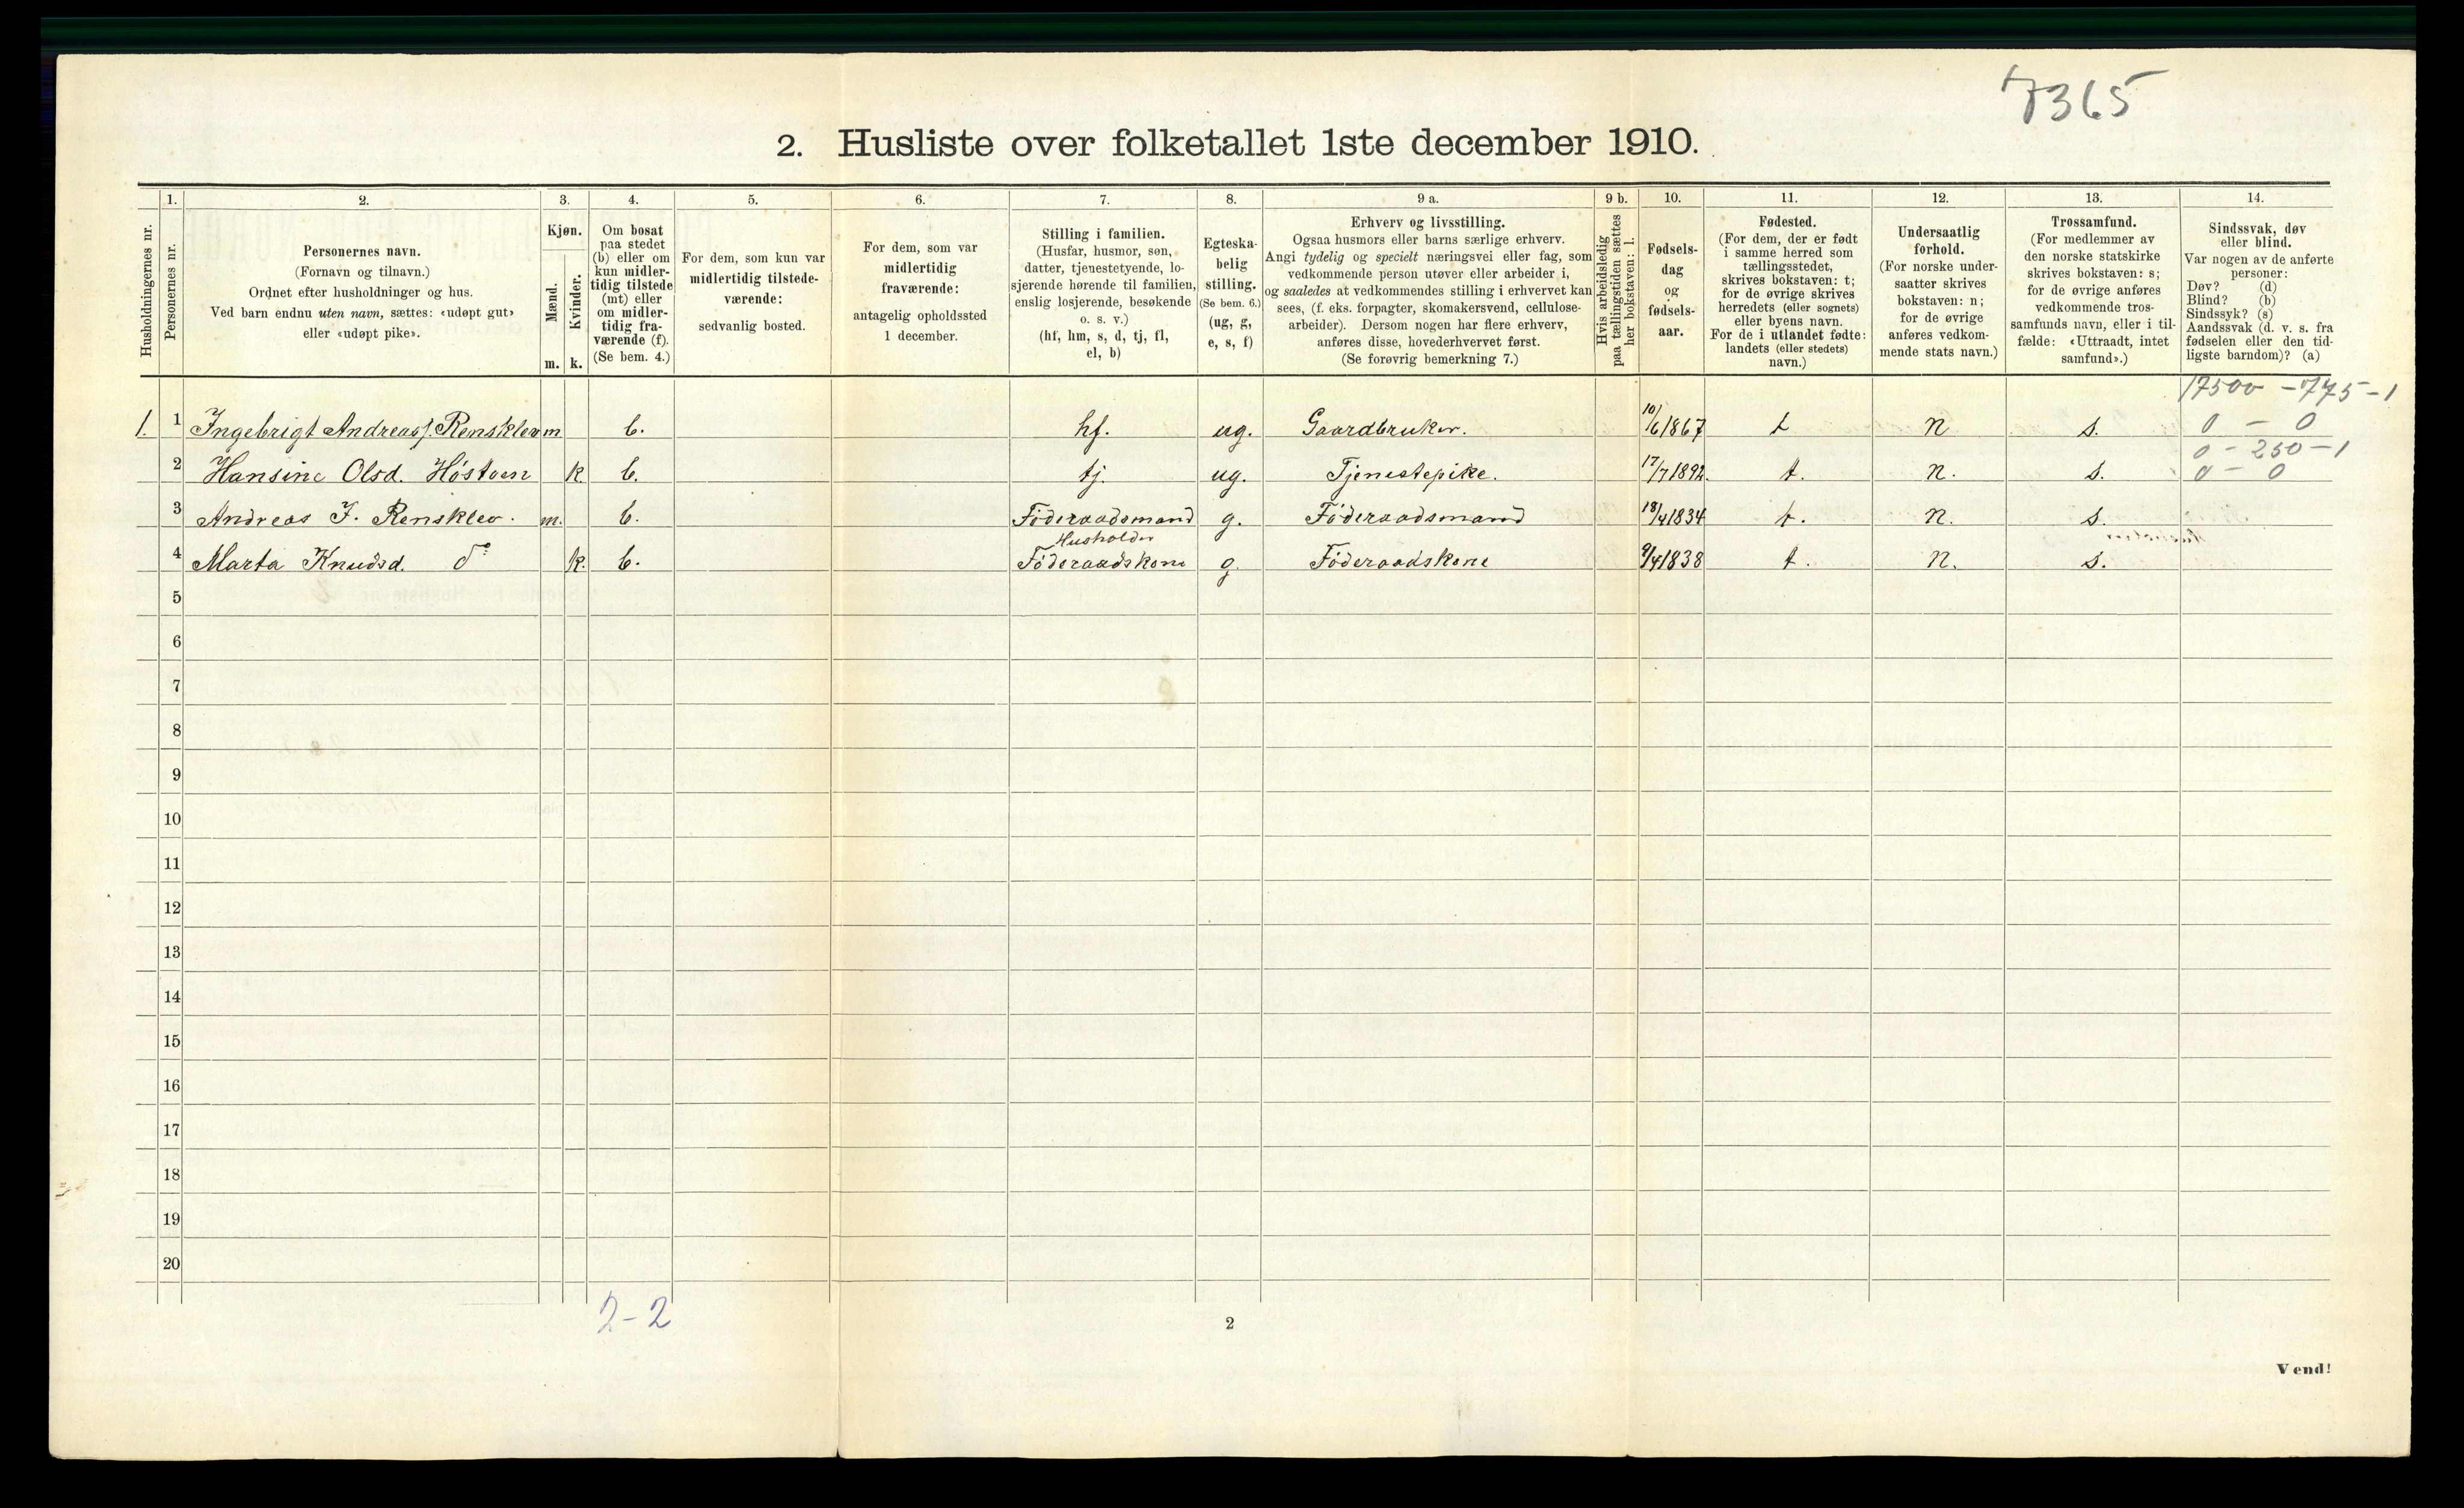 7365
2. Husliste over folketallet 1ste december 1910.
Husholdningernes nr.
1.
Personernes nr.
2.
Personernes navn.
(Fornavn og tilnavn.)
Ordnet efter husholdninger og hus.
Ved barn endnu uten navn, sættes: «udøpt gut»
eller «udøpt pike».
3.
Kjøn.
Mænd.
Kvinder.
m. k.
4.
Om bosat
paa stedet
(b) eller om
kun midler-
tidig tilstede
(mt) eller
om midler-
tidig fra-
værende (f).
(Se bem. 4.)
5.
For dem, som kun var
midlertidig tilstede-
værende:
sedvanlig bosted.
6.
For dem, som var
midlertidig
fraværende:
antagelig opholdssted
1 december.
7.
Stilling i familien.
(Husfar, husmor, søn,
datter, tjenestetyende, lo-
sjerende hørende til familien,
enslig losjerende, besøkende
o. s. v.)
(hf, hm, s, d, tj, fl,
el, b)
8.
Egteska-
belig
stilling.
(Se bem. 6.)
(ug, g,
e, s, f)
9 a.
Erhverv og livsstilling.
Ogsaa husmors eller barns særlige erhverv.
Angi tydelig og specielt næringsvei eller fag, som
vedkommende person utøver eller arbeider i,
og saaledes at vedkommendes stilling i erhvervet kan
sees, (f. eks. forpagter, skomakersvend, cellulose-
arbeider). Dersom nogen har flere erhverv,
anføres disse, hovederhvervet først.
(Se forøvrig bemerkning 7.)
9 b.
Hvis arbeidsledig
paa tællingstiden sættes
her bokstaven: l.
10.
Fødsels-
dag
og
fødsels-
aar.
11.
Fødested.
(For dem, der er født
i samme herred som
tællingsstedet,
skrives bokstaven: t;
for de øvrige skrives
herredets (eller sognets)
eller byens navn.
For de i utlandet fødte:
landets (eller stedets)
navn.)
12.
Undersaatlig
forhold.
(For norske under-
saatter skrives
bokstaven: n;
for de øvrige
anføres vedkom-
mende stats navn.)
13.
Trossamfund.
(For medlemmer av
den norske statskirke
skrives bokstaven: s;
for de øvrige anføres
vedkommende tros-
samfunds navn, eller i til-
fælde: «Uttraadt, intet
samfund».)
14.
Sindssvak, døv
eller blind.
Var nogen av de anførte
personer:
Døv? (d)
Blind? (b)
Sindssyk? (s)
Aandssvak (d. v. s. fra
fødselen eller den tid-
ligste barndom)? (a)
17500 - 775 - 1
1. 1 Ingebrigt Andreass. Rensklev m b. hf. ug. Gaardbruker. 10/6 1867 t n s. 0 - 0
0 - 250 - 1
2 Hansine Olsd. Höstoen k. b. tj. ug. Tjenestepike. 17/7 1892. t. n. s. 0 - 0
3 Andreas J. Rensklev. m. b. Föderaadsmand g. Föderaadsmand 18/4 1834 t. n. s.
Husholder
4 Marta Knudsd. do k. b. Föderaadskone g. Föderaadskone 9/4 1838 t. n. s.
5
6
7
8
9
10
11
12
13
14
15
16
17
18
19
20
2-2
2
Vend!